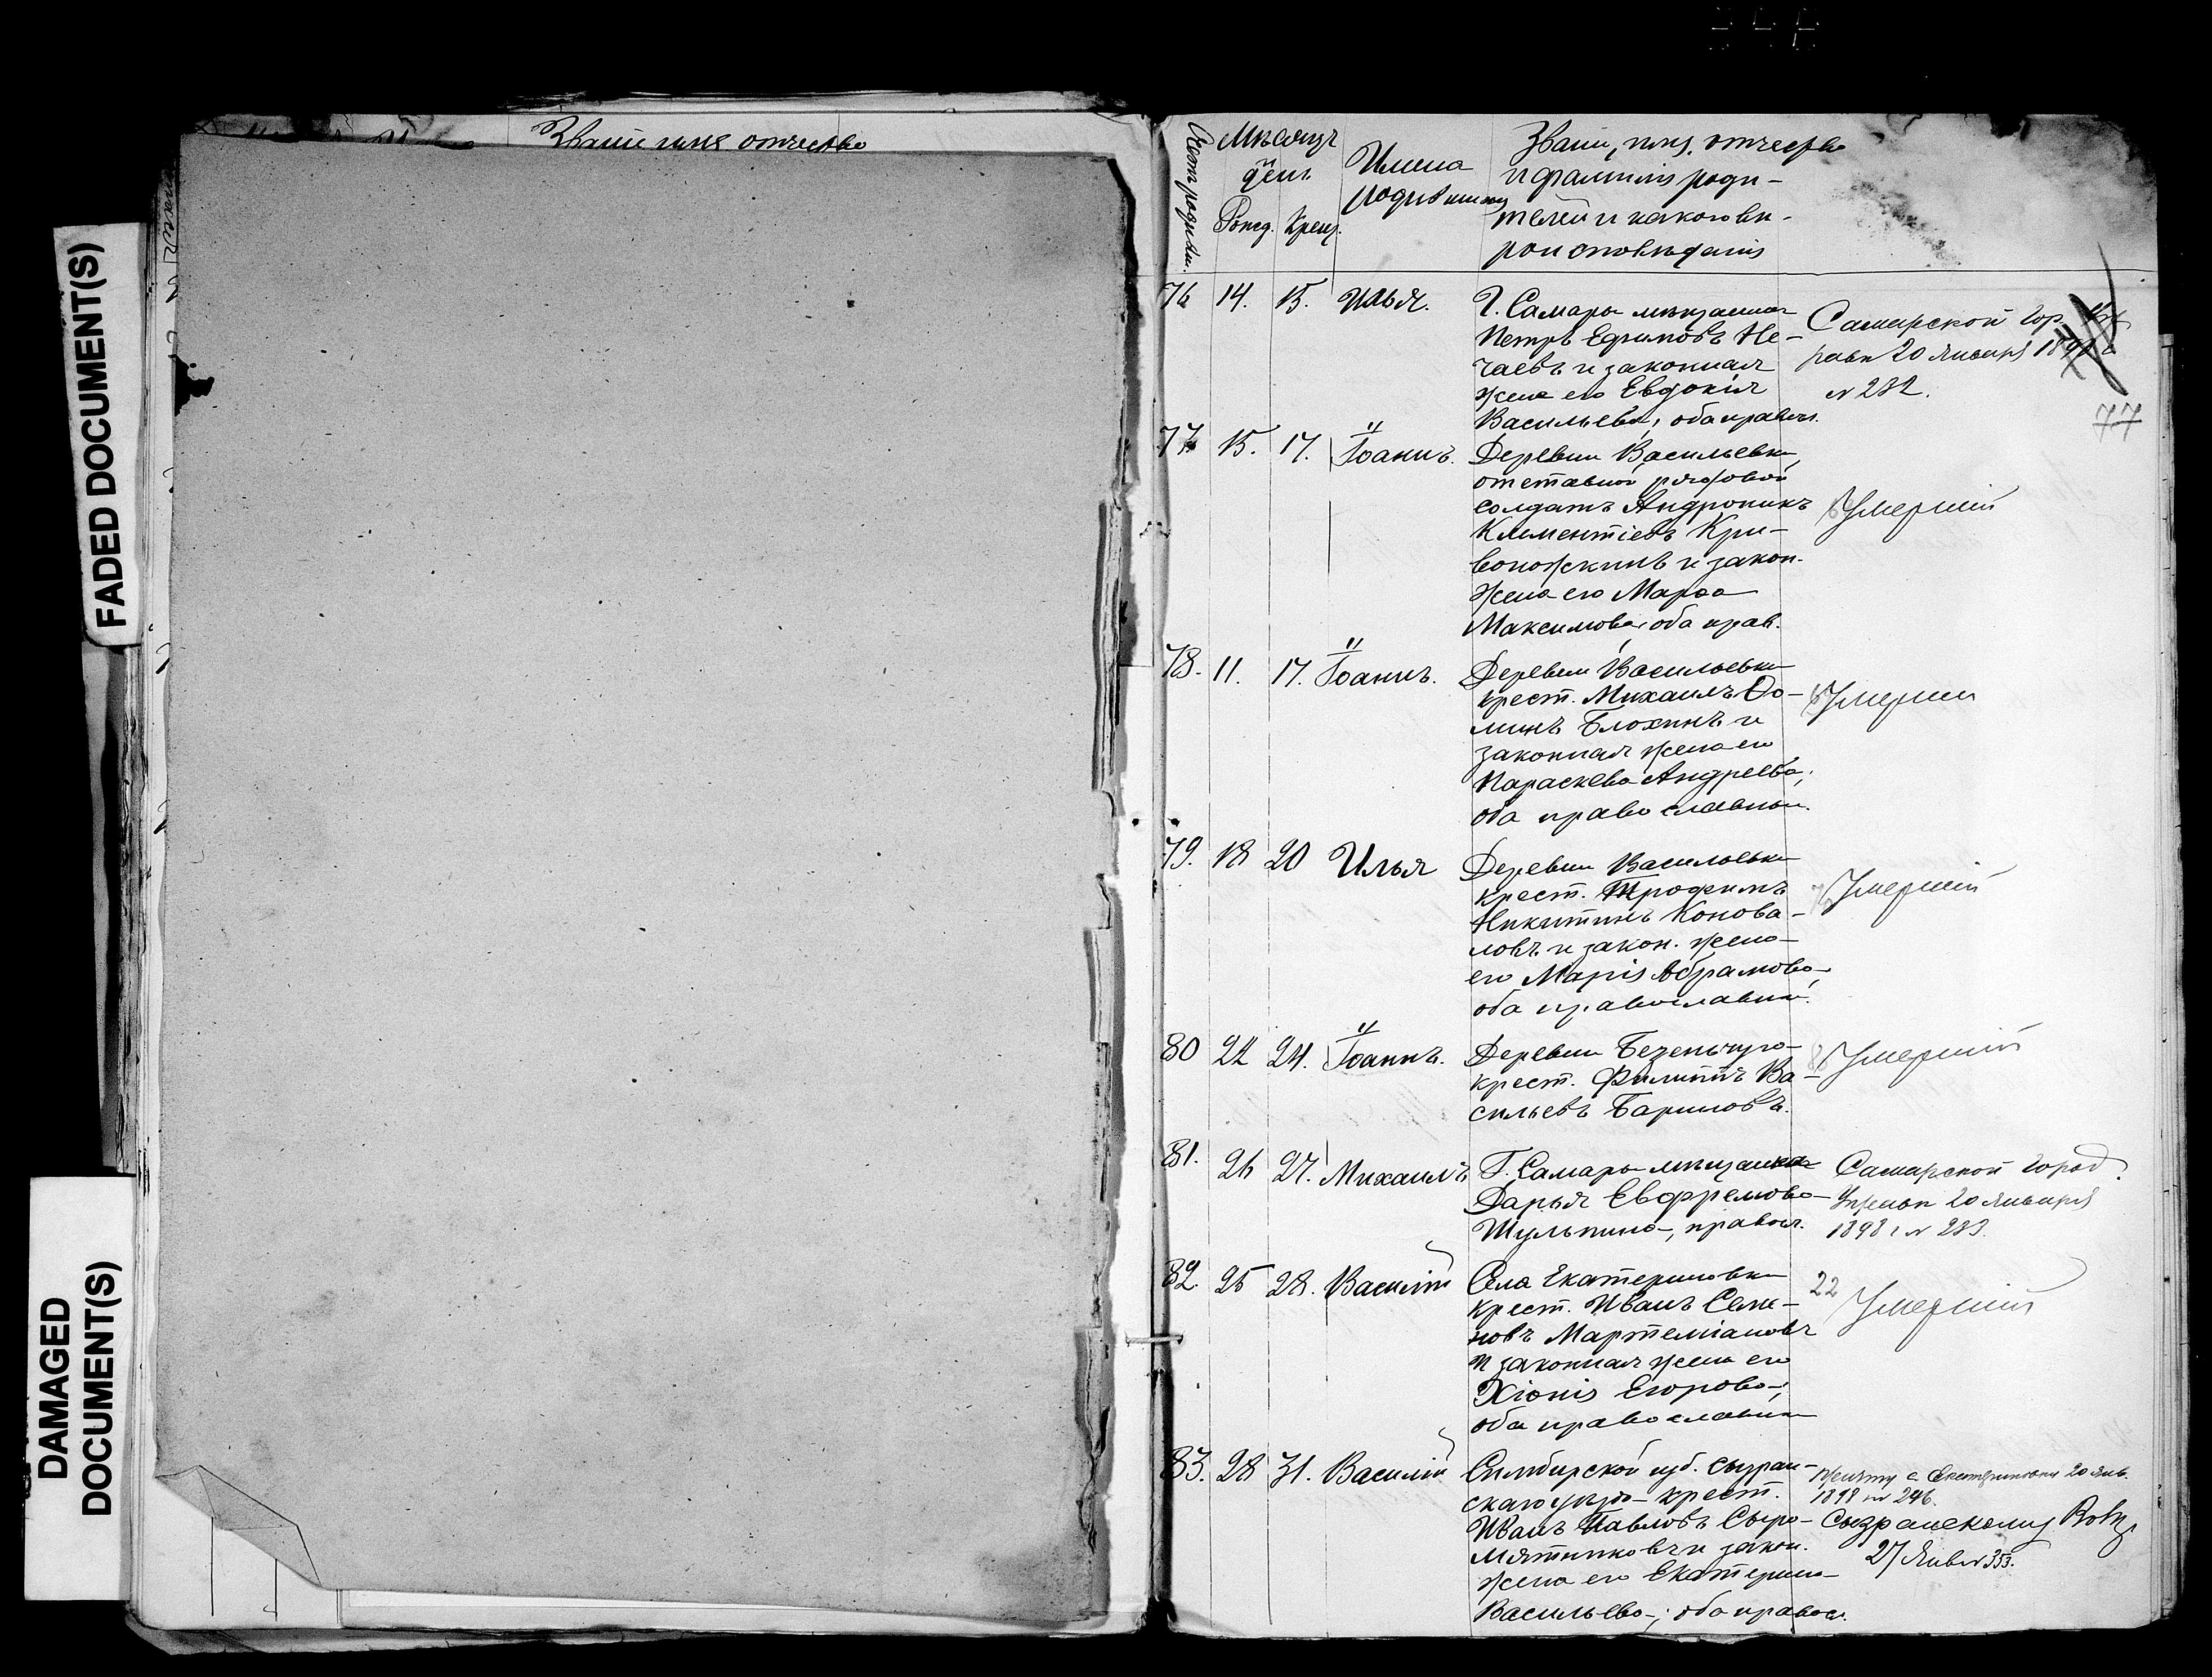 FADED DOCUMENT(S)
DAMAGED
DOCUMENT(S)
Званіе имя отчество
Счетъ родивш.
Мѣсяцъ
и
день
Рожд. Крещ.
Имена
родившихся
Званіе, имя, отчество
и фамилія роди-
телей и какого вѣ-
роисповѣданія
76 14. 15. Илья.
Г. Самары мѣщанинъ
Петръ Ефимовъ Не-
чаевъ и законная
жена его Евдокія
Васильева, оба правосл.
Самарской Гор.
20 Января
№ 282.
77
77. 15. 17. Іоаннъ.
Деревни Васильевки,
отставной рядовой
солдатъ Андроникъ
Климентіевъ Кри-
воножкинъ и закон.
жена его Марѳа
Максимова, оба прав.
Умершій
78. 11. 17. Іоаннъ.
Деревни Васильевки
крест. Михаилъ Ѳо-
минъ Блохинъ и
законная жена его
Параскева Андреева;
оба православные.
Умершій
79. 18 20 Илья
Деревни Васильевки
крест. Трофимъ
Никитинъ Конова-
ловъ и закон. жена
его Марія Абрамова,
оба православные.
Умершій
80 22 24. Іоаннъ.
Деревни Безенчука
крест. Филиппъ Ва-
сильевъ Бариновъ.
Умершій
81. 26 27. Михаилъ
Г. Самары мѣщанка
Дарья Евфремова
Шульпина, правосл.
Самарской Город.
Управѣ 20 Января
1898 г № 283.
82. 25 28. Василій
Села Екатериновки
крест. Иванъ Семе-
новъ Мартеміановъ
и законная жена его
Хіонія Егорова;
оба православные
22
Умершій
83. 28 31. Василій
Симбирской губ. Сызран-
скаго уѣзда крест.
Иванъ Павловъ Сыро-
мятниковъ и закон.
жена его Екатерина
Васильева; оба правосл.
с. Екатериновки 20 Янв.
1898 № 246.
Сызранскому
27 Янв № 353.